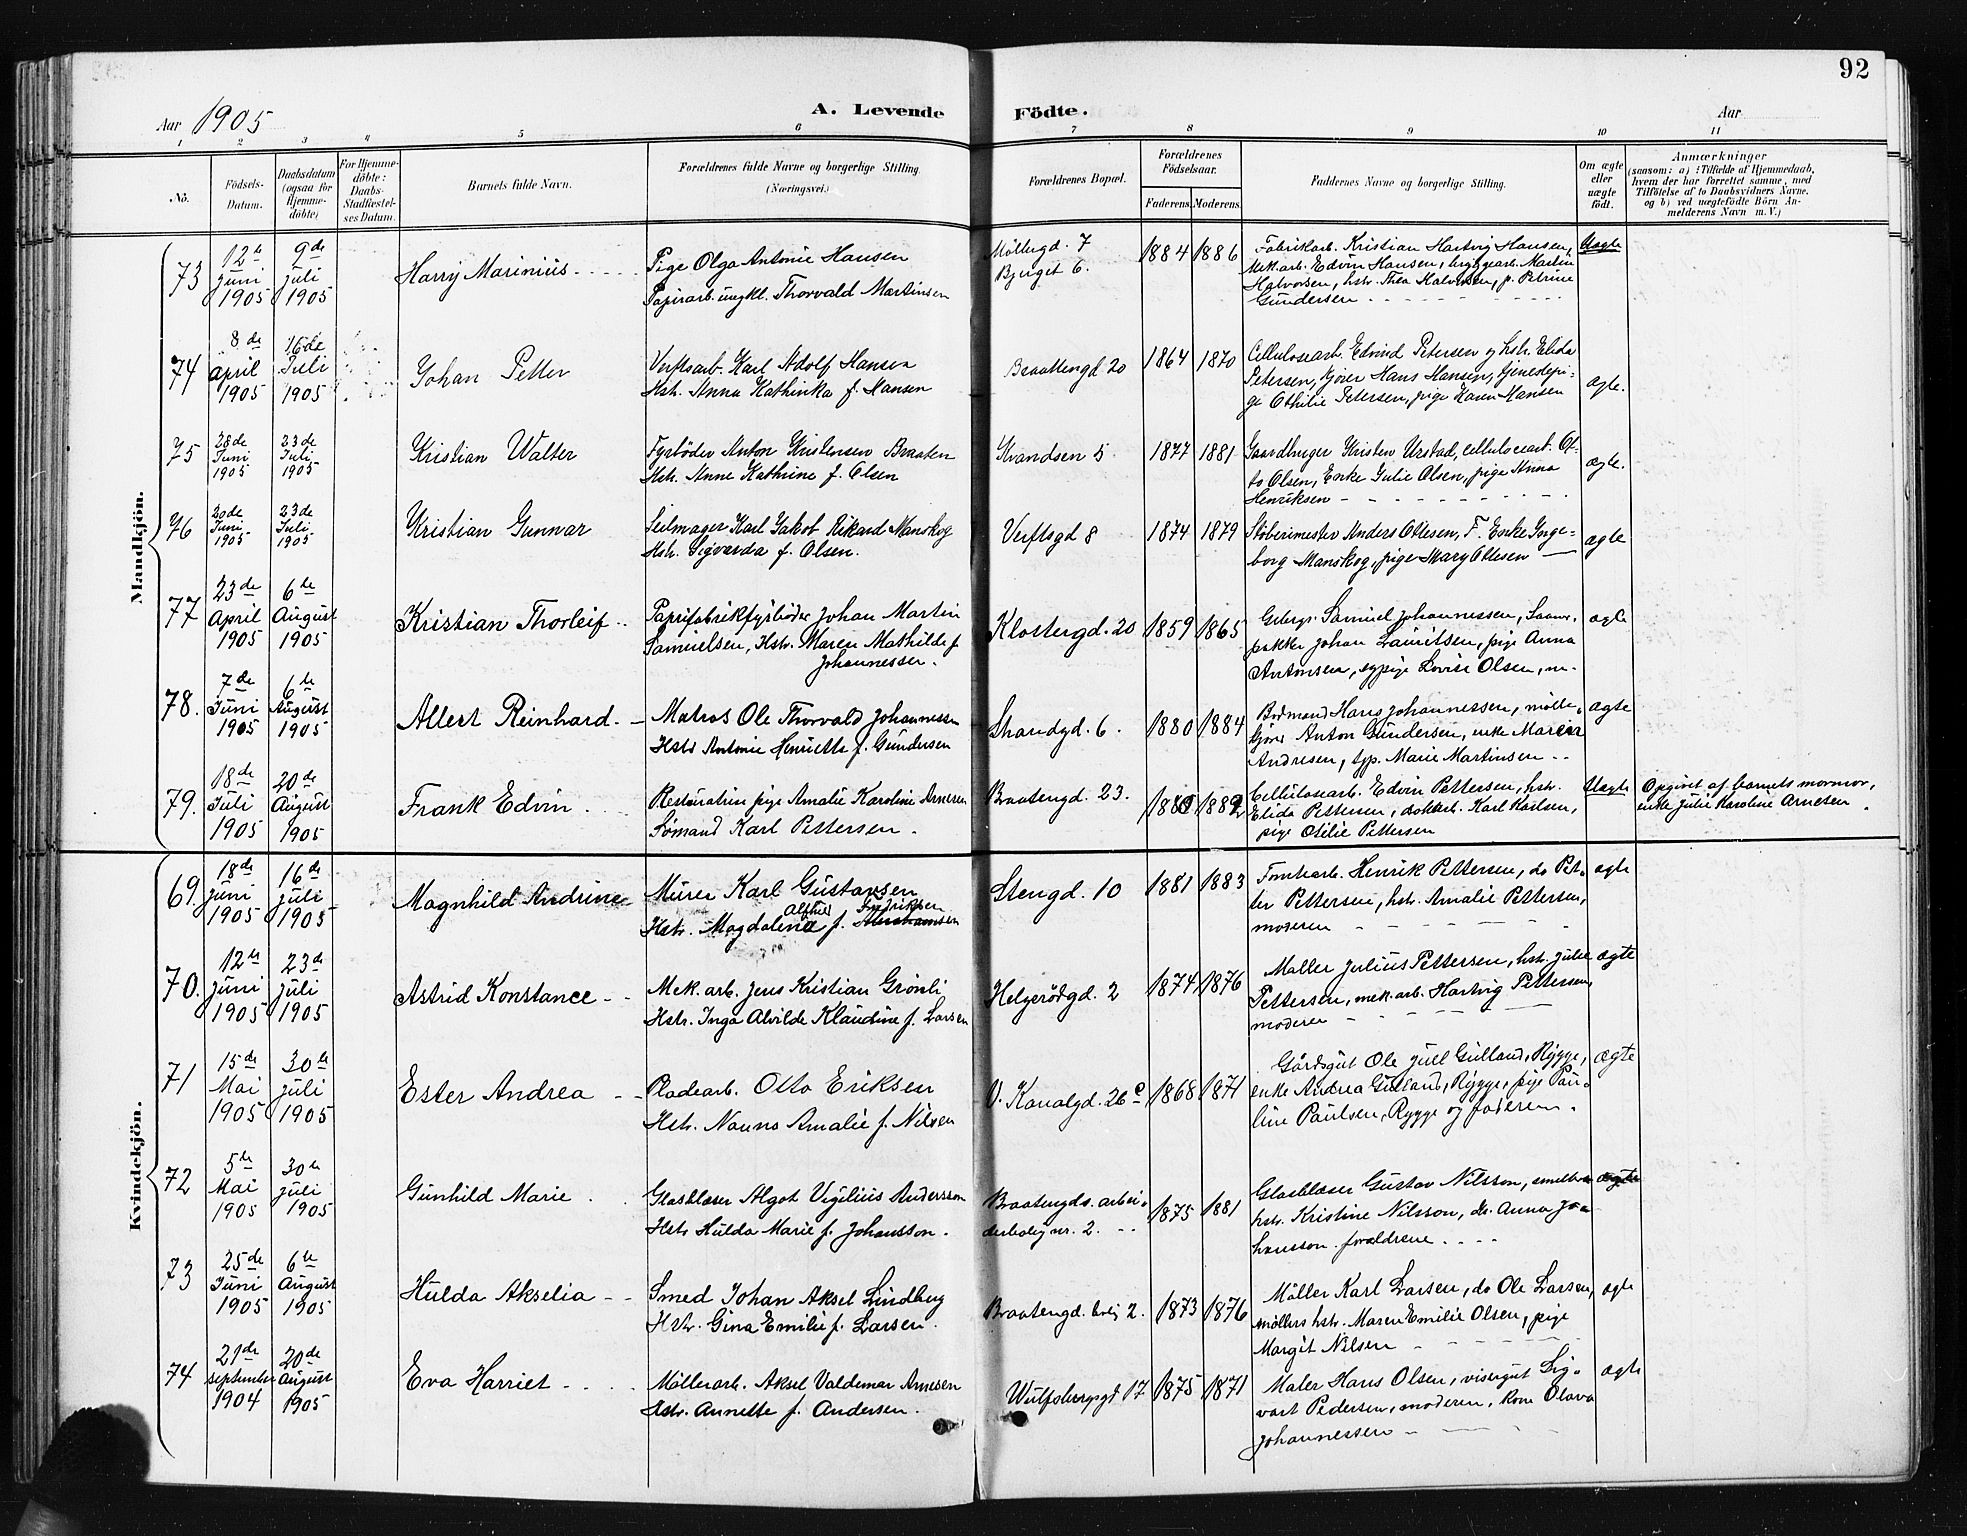 92
Aar 1905
A. Levende Födte.
Aar
1 2 3 4 5 6 7 8 9 10 11
No.
Födsels-
Datum.
Daabsdatum
(ogsaa for
Hjemme-
döbte)
For Hjemme-
döbte:
Daabs-
Stadfæstel-
ses Datum.
Barnets fulde Navn.
Forældrenes fulde Navne og borgerlige Stilling.
(Næringsvei.)
Forældrenes Bopæl.
Forældrenes
Födselsaar.
Faderens. Moderens.
Faddernes Navne og borgerlige Stilling.
Om ægte
eller
uægte
födt.
Anmærkninger
(saasom: a) i Tilfælde af Hjemmedaab,
hvem der har forrettet samme, med
Tilföielse af to Daabsvidners Navne,
og b) ved uægtefödte Börn An-
melderens Navn m. V.)
Mandkjön.
73
12te Juni 1905
9de Juli 1905
Harry Marinius
Pige Olga Antonie Hansen
Papirarb. ungkl. Thorvald Martinsen
Möllergd. 7
Bjerget 6.
1884 1886
Fabrikarb. Kristian Hartvig Hansen,
Mek.arb. Edvin Hansen, bryggearb. Martin
Halvorsen, hstr. Thea Halvorsen, p. Petrine
Gundersen
Uægte
74
8de April 1905
16de Juli 1905
Johan Petter
Verftsarb. Karl Adolf Hansen
Hstr. Anna Kathinka f. Hansen
Braattengd 20
1864 1870
Cellulosearb. Edvind Petersen og hstr. Elida
Petersen, kjører Hans Hansen, tjenestepi-
ge Othilie Petersen, pige Karen Hansen
ægte.
75
28de Juni 1905
23de Juli 1905
Kristian Walter
Fyrböder Anton Kristensen Braaten
Hstr. Anne Kathrine f. Olsen
Krandsen 5
1877 1881
Gaardbruger Kristen Urstad, cellulosearb. Ot-
to Olsen, Enke Julie Olsen, pige Anna
Henriksen
ægte.
76
20de Juni 1905
23de Juli 1905
Kristian Gunnar
Seilmager Karl Jakob Rikard Manskog
Hstr. Sigvarda f. Olsen.
Verftsgd 8
1874 1879
Støberimester Anders Ottesen, F. Enke Inge-
borg Manskog, pige Mary Ottesen
ægte
77
23de April 1905
6te August 1905
Kristian Thorleif
Papirfabrikfyrböder Johan Martin
Samuelsen, Hstr. Maren Mathilde f.
Johannessen.
Klostergd. 20
1859 1865
Samuel Johannessen,
pakker Johan Lauritsen, pige Anna
Antonsen, sypige Lovise Olsen, m.
ægte
78.
7de Juni 1905
6te August 1905
Albert Reinhard
Matros Ole Thorvald Johannessen
Hstr Antonie Henriette f. Gundersen
Strandgd. 6.
1880 1884
Bodmand Hans Johannessen, mølle-
Gjører Anton Gundersen, enke Maren
Andresen, syp. Marie Martinsen
ægte
79.
18de Juli 1905
20de August 1905
Frank Edvin
Restauratrin pige Amalie Karoline Arnesen
Sømand Karl Pettersen.
Braatengd. 23.
1880 1882
Cellulosearb. Edvin Pettersen, hstr.
Elida Pettersen, dokkarb. Karl Karlsen,
pige Otilie Pettersen
Uægte
Opgivet af barnets mormor,
enke Julie Karoline Arnesen
Kvindekjön.
69.
18de Juni 1905
16de Juli 1905
Magnhild Andrine
Murer Karl Gustavsen
Hstr. Magdalene Alfhild f. Abrahamsen Fredriksen
Stengd. 10
1881 1883
Tomtearb. Henrik Pettersen, do Pet-
ter Pettersen, hstr. Amalie Pettersen,
moderen
ægte
70.
12te Juni 1905
23de Juli 1905
Astrid Konstance
Mek. arb. Jens Kristian Grönli
Hstr. Inga Alvilde Klaudine f. Larsen
Helgerödgd. 2
1874 1876
Maller Julius Pettersen, hstr. Julie
Pettersen, mek. arb. Hartvig Pettersen,
moderen
ægte
71
15de Mai 1905
30te Juli 1905
Ester Andrea
Pladearb. Otto Eriksen
Hstr. Nanna Amalie f. Nilsen
V. Kanalgd. 26 c
1868 1871
Gårdsgut Ole Juell Gulland, Rygge,
enke Andrea Gulland, Rygge, pige Pau-
line Paulsen, Rygge og faderen.
ægte
72
5te Mai 1905
30te Juli 1905
Gunhild Marie
Glasblæser Algot Vigilius Andersson
Hstr Hulda Marie f. Johansson.
Braatengds. arbei-
derbolig nr. 2.
1875 1881
Glasblæser Gustav Nilsson, smelter
hstr. Kristine Nilsson, do. Anna Jo-
hansson. forældrene
ægte
73
25de Juni 1905
6te August 1905
Hulda Akselia
Smed Johan Aksel Lindberg
Hstr. Gina Emilie f. Larsen.
Braatengd. bolig 2.
1873 1876
Möller Karl Larsen, do Ole Larsen,
möllers hstr. Maren Emilie Olsen, pige
Margit Nilsen
ægte
74
21de September 1904
20de August 1905
Eva Harriet
Möllerarb. Aksel Valdemar Arnesen
Hstr. Annette f. Andersen.
Wulfsbergsgd 17
1875 1871
Maler Hans Olsen, visergut Sig-
vart Pedersen, moderen, kone Olava
Johannessen
ægte